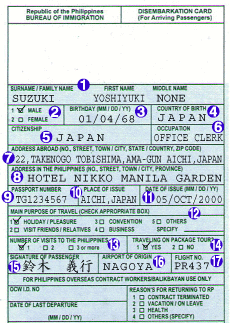 Republic of the Philippines
BUREAU OF IMMIGRATION
DISEMBARKATION CARD
(For Arriving Passengers)
SURNAME / FAMILY NAME ① FIRST NAME MIDDLE NAME
SUZUKI YOSHIYUKI NONE
1 MALE ② BIRTHDAY (MM / DD / YY) ③ COUNTRY OF BIRTH ④
2 □ FEMALE 01/04/68 JAPAN
CITIZENSHIP OCCUPATION ⑥
⑤ JAPAN OFFICE CLERK
ADDRESS ABROAD (NO., STREET, TOWN / CITY, STATE / COUNTRY, ZIP CODE)
⑦ 22, TAKENOGO TOBISHIMA, AMA-GUN AICHI, JAPAN
ADDRESS IN THE PHILIPPINES (NO., STREET, TOWN / CITY, PROVINCE)
⑧ HOTEL NIKKO MANILA GARDEN
PASSPORT NUMBER ⑩ PLACE OF ISSUE ⑪ DATE OF ISSUE (MM / DD / YY)
⑨ TG1234567 AICHI, JAPAN 05/OCT/2000
MAIN PURPOSE OF TRAVEL (CHECK APPROPRIATE BOX) ⑫
1 HOLIDAY / PLEASURE 3 □ CONVENTION 5 □ OTHERS
2 □ VISIT FRIENDS / RELATIVES 4 □ BUSINESS SPECIFY
NUMBER OF VISITS TO THE PHILIPPINES ⑬ TRAVELING ON PACKAGE TOUR? ⑭
1 □ 2 □ 3 or more 1 YES 2 □ NO
SIGNATURE OF PASSENGER AIRPORT OF ORIGIN FLIGHT NO. ⑰
⑮ 鈴木 義行 NAGOYA ⑯ PR437
FOR PHILIPPINES OVERSEAS CONTRACT WORKERS/BALIKBAYAN USE ONLY
OCW I.D. NO
REASON'S FOR RETURNING TO RP
1 □ CONTRACT TERMINATED
2 □ VACATION / ON LEAVE
3 □ HEALTH
4 □ OTHERS (SPECIFY)
DATE OF LAST DEPARTURE
(MM / DD / YY)